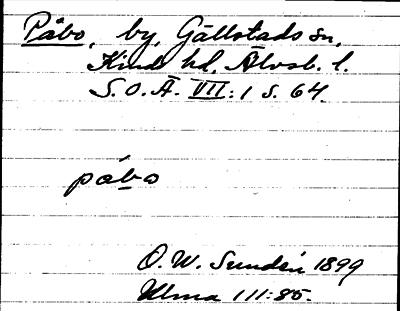 Påbo, by, Gällstads sn,
Kinds hd, Älvsb. l.
S. O. Ä. VII: 1 s. 64.
påbo
O. W. Sundén 1899
Ulma 111:85.